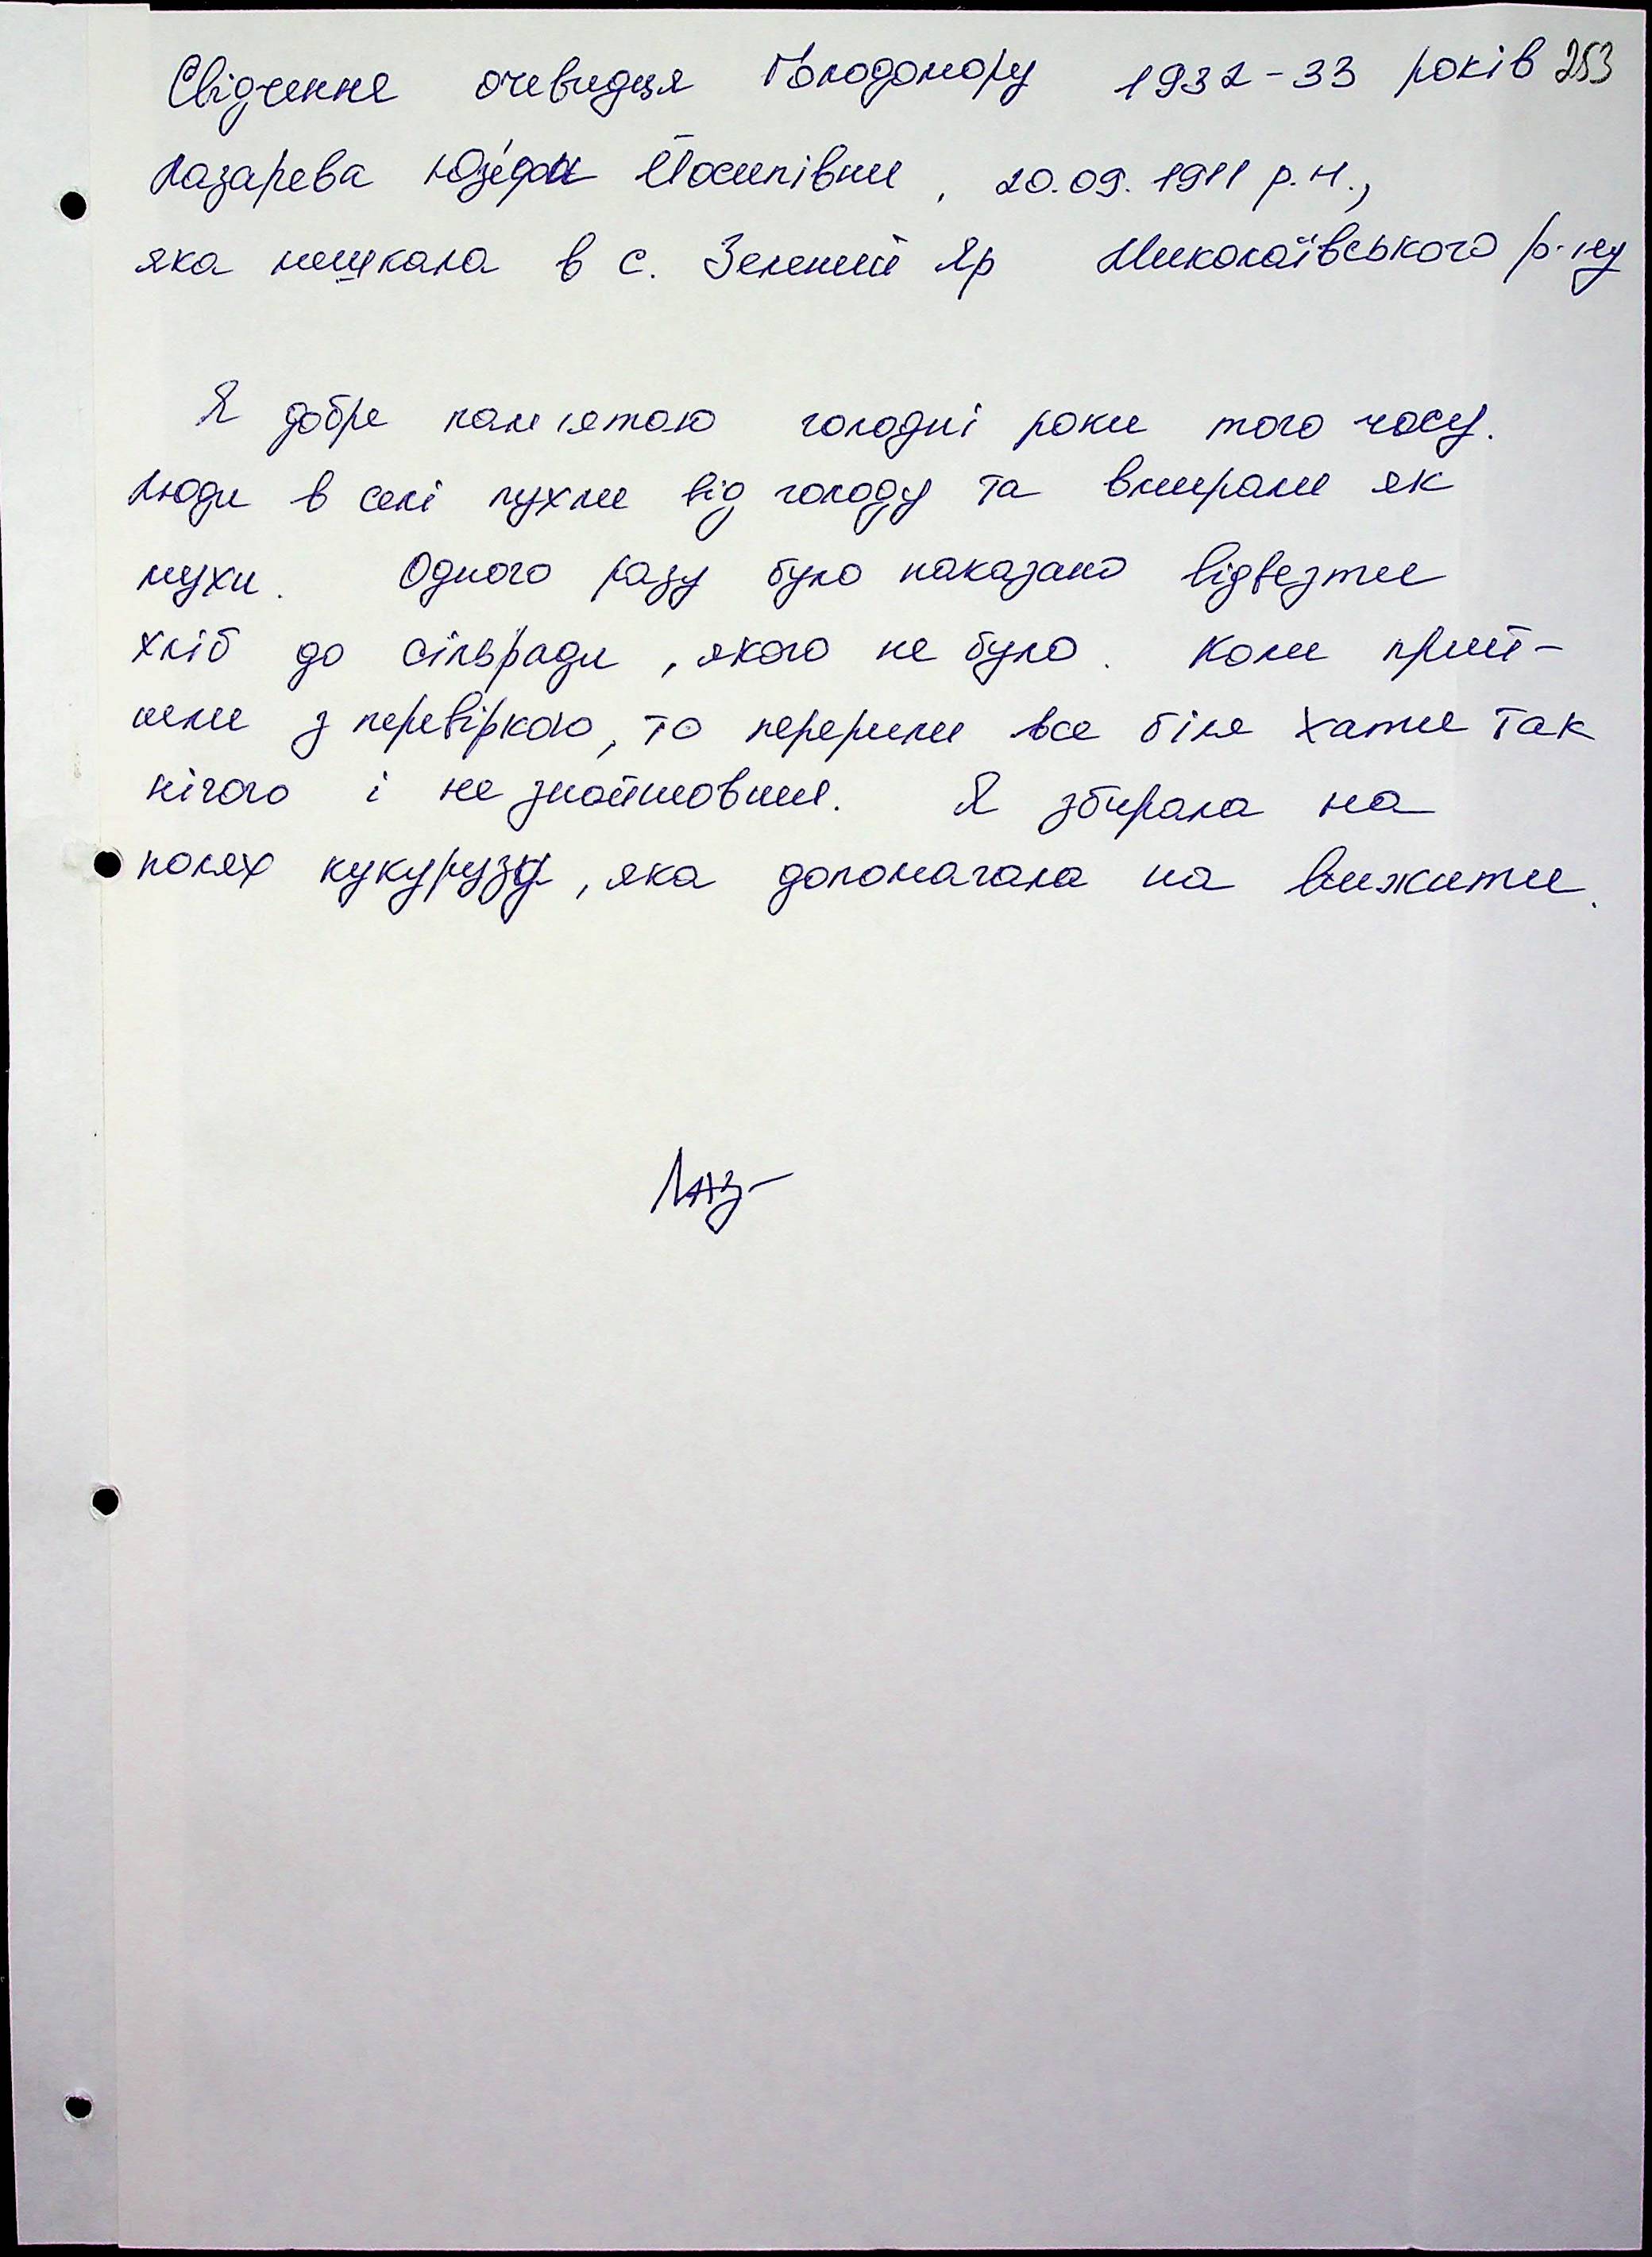 Свідчення очевидця Голодомору 1932-33 років 253
Лазарева Юзефи Йосипівни, 20.09.1911 р.н.,
яка мешкала в с. Зелений Яр Миколаївського р-ну
Я добре пам'ятаю голодні роки того часу.
Люди в селі пухли від голоду та вмирали як
мухи. Одного разу було наказано відвезти
хліб до сільради, якого не було. Коли прий-
шли з перевіркою, то перерили все біля хати так
нічого і не знайшовши. Я збирала на
полях кукурузу, яка допомагала на вижити.
Лаз